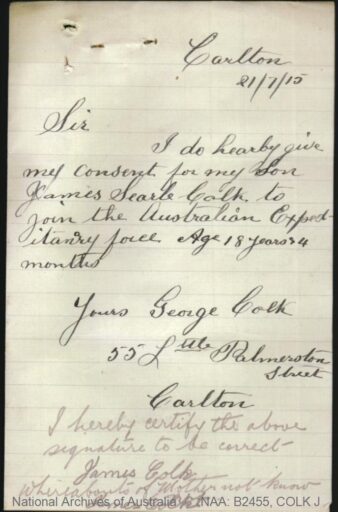 Carlton
21/7/15
Sir
I do hearby give
my consent for my Son
James Searle Colk. to
join the Australian Exped-
itanry force Age 18 years & 4
months
Yours George Colk
55 Lttle Palmerston
Street
Carlton
I hereby certify the above
signature to be correct
James Colk
Whereabouts of Mother not know
National Archives of Australia NAA: B2455, COLK J